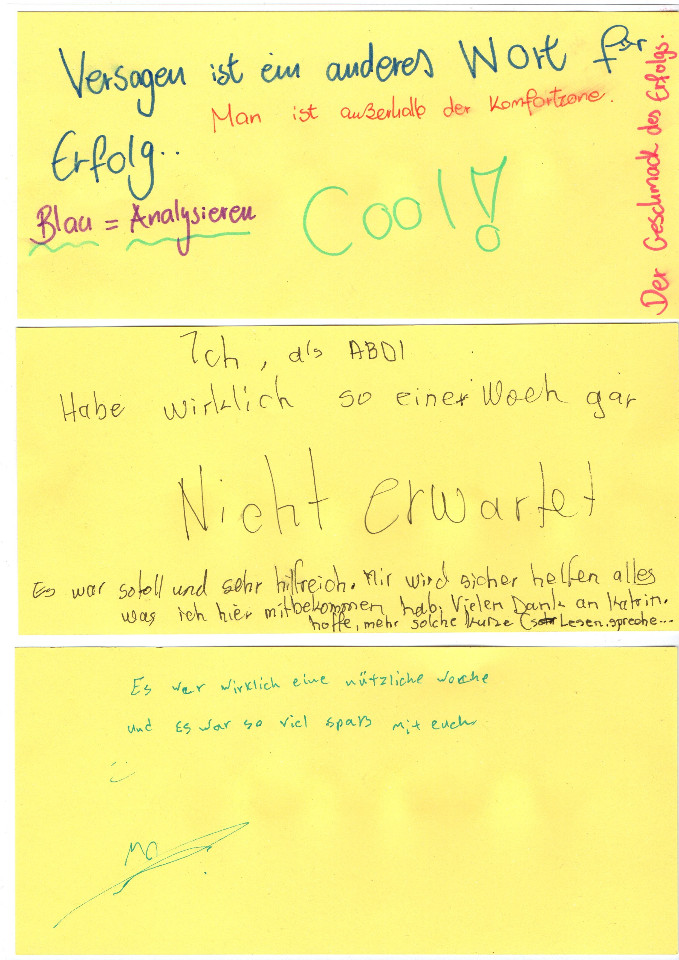 Versagen ist ein anderes Wort für
Man ist außerhalb der Komfortzone.
Erfolg..
Der Geschmack des Erfolgs.
Blau = Analysieren
Cool!
Ich, als ABDI
Habe wirklich so einer Woch gar
Nicht erwartet
Es war so toll und sehr hilfreich. Mir wird sicher helfen alles
was ich hier mitbekommen hab. Vielen Dank an Katrin.
hoffe, mehr solche kurze Lesen, spreche...
Es war wirklich eine nützliche woche
und es war so viel spaß mit euch